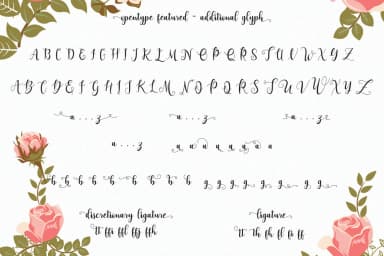 opentype featured - additional glyph
A B C D E F G H I J K L M N O P Q R S T U V W X Y Z
A B C D E F G H I J K L M N O P Q R S T U V W X Y Z
a . . . . z a . . . . z a . . . . z
a . . . . z a a a a a a a a
b b b b b b b b g g g g g g g g
discretionary ligature ligature
tt ffi ffl ff ffh tt th fh fl fi ff